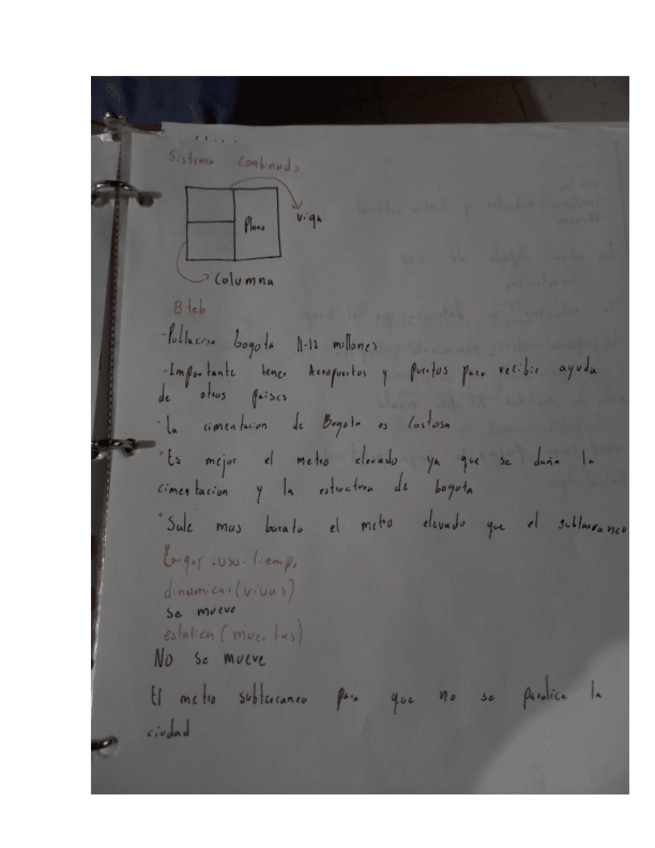 Sistema Combinado
viga
Plano
Columna
B teb
-Poblacion bogota 11-12 millones
-Importante tener Aeropuertos y puertos para recibir ayuda
de otros paises
-la cimentacion de Bogota es Costosa
*Es mejor el metro elevado ya que se daña la
cimentacion y la estructura de bogota
*Sale mas barato el metro elevado que el subterraneo
Cargas .uso. tiempo
dinamicas (vivas)
se mueve
estatica (muertas)
NO se mueve
El metro subterraneo para que no se paralice la
ciudad